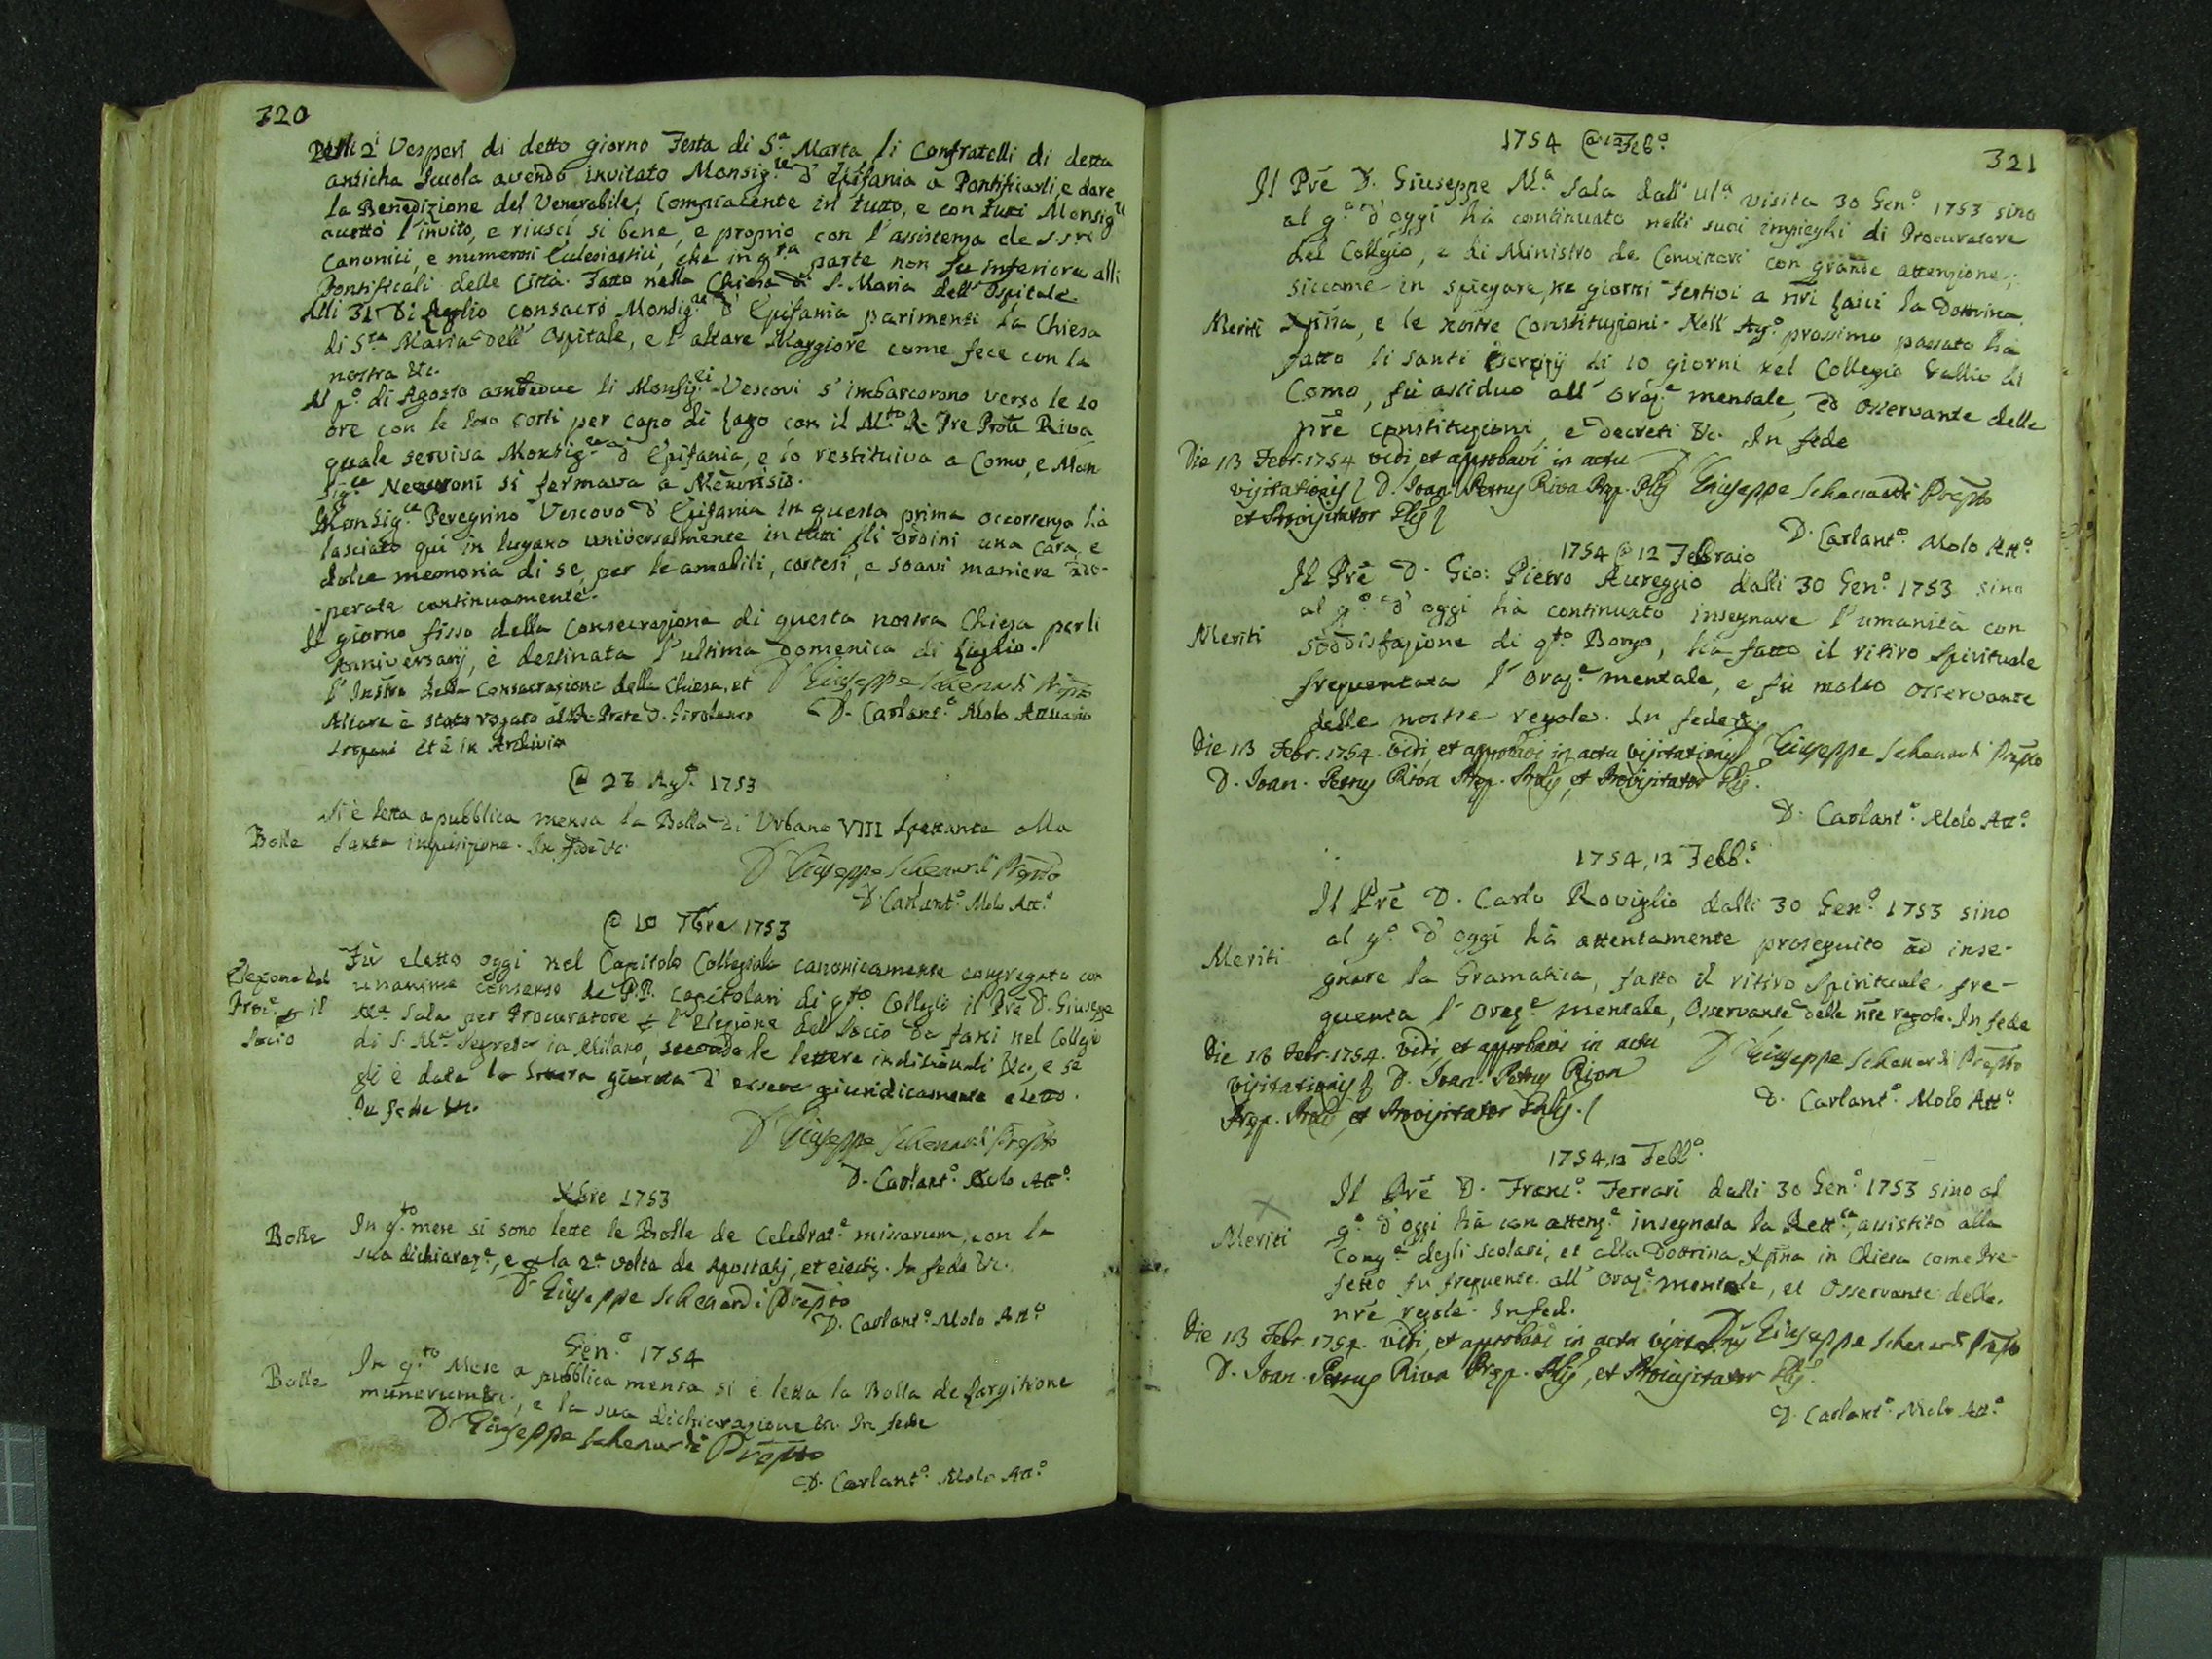 320
Delli 2i Vesperi di detto giorno Festa di S.a Marta, li Confratelli di detta
anticha Scuola avendo invitato Monsig.re d'Epifania a Pontificarli, e dare
la Benedizione del Venerabile; Compiacente in tutto, e con tutti Monsig.re
accettò l'invito, e riuscì sì bene, e proprio con l'assistenza de S.sri
Canonici, e numerosi Eclesiastici, che in q.sta parte non fu inferiore alli
Pontificali delle Città. Fatto nella Chiesa di S. Maria dell'Ospitale
Alli 31 di Luglio consacrò Monsig.re d'Epifania parimenti la Chiesa
di S.ta Maria dell'Ospitale, e l'altare Maggiore come fece con la
nostra &c.
Al p.o di Agosto ambedue li Monsig.ri Vescovi s'imbarcorono verso le 10
ore con le loro corti per capo di Lago con il M.to R. Pre Prote Riva
quale serviva Monsig.re d'Epifania, e lo restituiva a Como, e Mon
Sig.re Neuroni si fermava a Menvisio.
Monsig.re Peregrino Vescovo d'Epifania in questa prima occorrenza hà
lasciato quì in lugano universalmente in tutti gli ordini una cara, e
dolce memoria di se, per le amabili, cortesi, e soavi maniere ado-
perate continuamente.
Il giorno fisso della Consecrazione di questa nostra Chiesa per li
Anniversarij, è destinata l'ultima Domenica di Luglio.
L'Instro della Consacrazione della Chiesa, et D. Giuseppe Schenardi Prepto
Altare è stato rogato dal Prete D. Girolamo D. Carlant.o Molo Attuario
et è in Archivio
@ 23 Ag.o 1753
Si è letta a pubblica mensa la Bolla di Urbano VIII spettante alla
Bolle Santa inquisizione. In fede &c.
D. Giuseppe Schenardi Prepto
D. Carlant.o Molo Att.o
@ 10 7bre 1753
Fù eletto oggi nel Capitolo Collegiale canonicamente congregato con
Elezione del unanime consenso de PP. Capitolari di q.sto Collegio il Pre D. Giuseppe
Proc.e p il M.a Sala per Procuratore p l'Elezione del Socio da farsi nel Collegio
Socio di S. M.a Segreta in Milano, secondo le lettere indizionali &c., e se
gli è data la lettera giurata d'essere giuridicamente eletto.
In fede &c.
D. Giuseppe Schenardi Prepto
D. Carlant.o Molo Att.o
Xbre 1753
Bolle In q.to mese si sono lette le Bolle de Celebrat.e missarum, con la
sua dichiaraz.e, e p la 2.a volta de Apostatis, et eiectis. In fede &c.
D. Giuseppe Schenardi Prepto
D. Carlant.o Molo Att.o
Gen.o 1754
Bolle In q.to Mese a pubblica mensa si è letta la Bolla de Largitione
munerum &c., e la sua dichiarazione &c. In fede
D. Giuseppe Schenardi Prepto
D. Carlant.o Molo Att.o
321
1754 @ 12 Feb.o
Il Pre D. Giuseppe M.a Sala dall'ul.a visita 30 Gen.o 1753 sino
al g.o d'oggi hà continuato nelli suoi impieghi di Procuratore
del Collegio, e di Ministro de Convittori con grande attenzione,
siccome in spiegare, ne giorni festivi a nri laici la Dottrina
Meriti Xpna, e le nostre Constituzioni. Nell'Ag.o prossimo passato ha
fatto li santi Esercizij di 10 giorni nel Collegio Gallio di
Como, fù assiduo all'oraz.e mentale, ed osservante delle
nre constituzioni, e Decreti &c. In fede
Die 13 Febr. 1754 vidi, et approbavi in actu
visitationis D. Joan. Petrus Riva Prep. Plis D. Giuseppe Schenardi Prepto
et Provisitator Plis
D. Carlant.o Molo Att.o
1754 @ 12 Febraio
Il Pre D. Gio: Pietro Aureggio dalli 30 Gen.o 1753 sino
al g.o d'oggi hà continuato insegnare l'umanità con
Meriti soddisfazione di q.sto Borgo, hà fatto il ritiro Spirituale
frequentata l'oraz.e mentale, e fù molto osservante
delle nostre regole. In fede &c.
Die 13 Febr. 1754. vidi, et approbavi in actu visitationis D. Giuseppe Schenardi Prepto
D. Joan. Petrus Riva Prep. Plis, et Provisitator Plis.
D. Carlant.o Molo Att.o
1754, 12 Febb.o
Il Pre D. Carlo Roviglio dalli 30 Gen.o 1753 sino
al g.o d'oggi hà attentamente proseguito ad inse-
Meriti gnare la Gramatica, fatto il ritiro Spirituale. fre-
quenta l'oraz.e mentale, Osservante delle nre regole. In fede
Die 13 Febr. 1754. vidi, et approbavi in actu D. Giuseppe Schenardi Prepto
visitationis D. Joan. Petrus Riva
Prep. Plis, et Provisitator Plis. D. Carlant.o Molo Att.o
1754, 12 Febb.o
Il Pre D. Franc.o Ferrari dalli 30 Gen.o 1753 sino al
Meriti g.o d'oggi hà con attenz.e insegnata la Rett.ca, assistito alla
Cong.e degli scolari, et alla Dottrina Xpna in Chiesa come Pre-
fetto fu frequente all'oraz.e mentale, et Osservante delle
nre regole. In fed.
Die 13 Febr. 1754. vidi, et approbavi in actu visitationis D. Giuseppe Schenardi Prepto
D. Joan. Petrus Riva Prep. Plis, et Provisitator Plis.
D. Carlant.o Molo Att.o